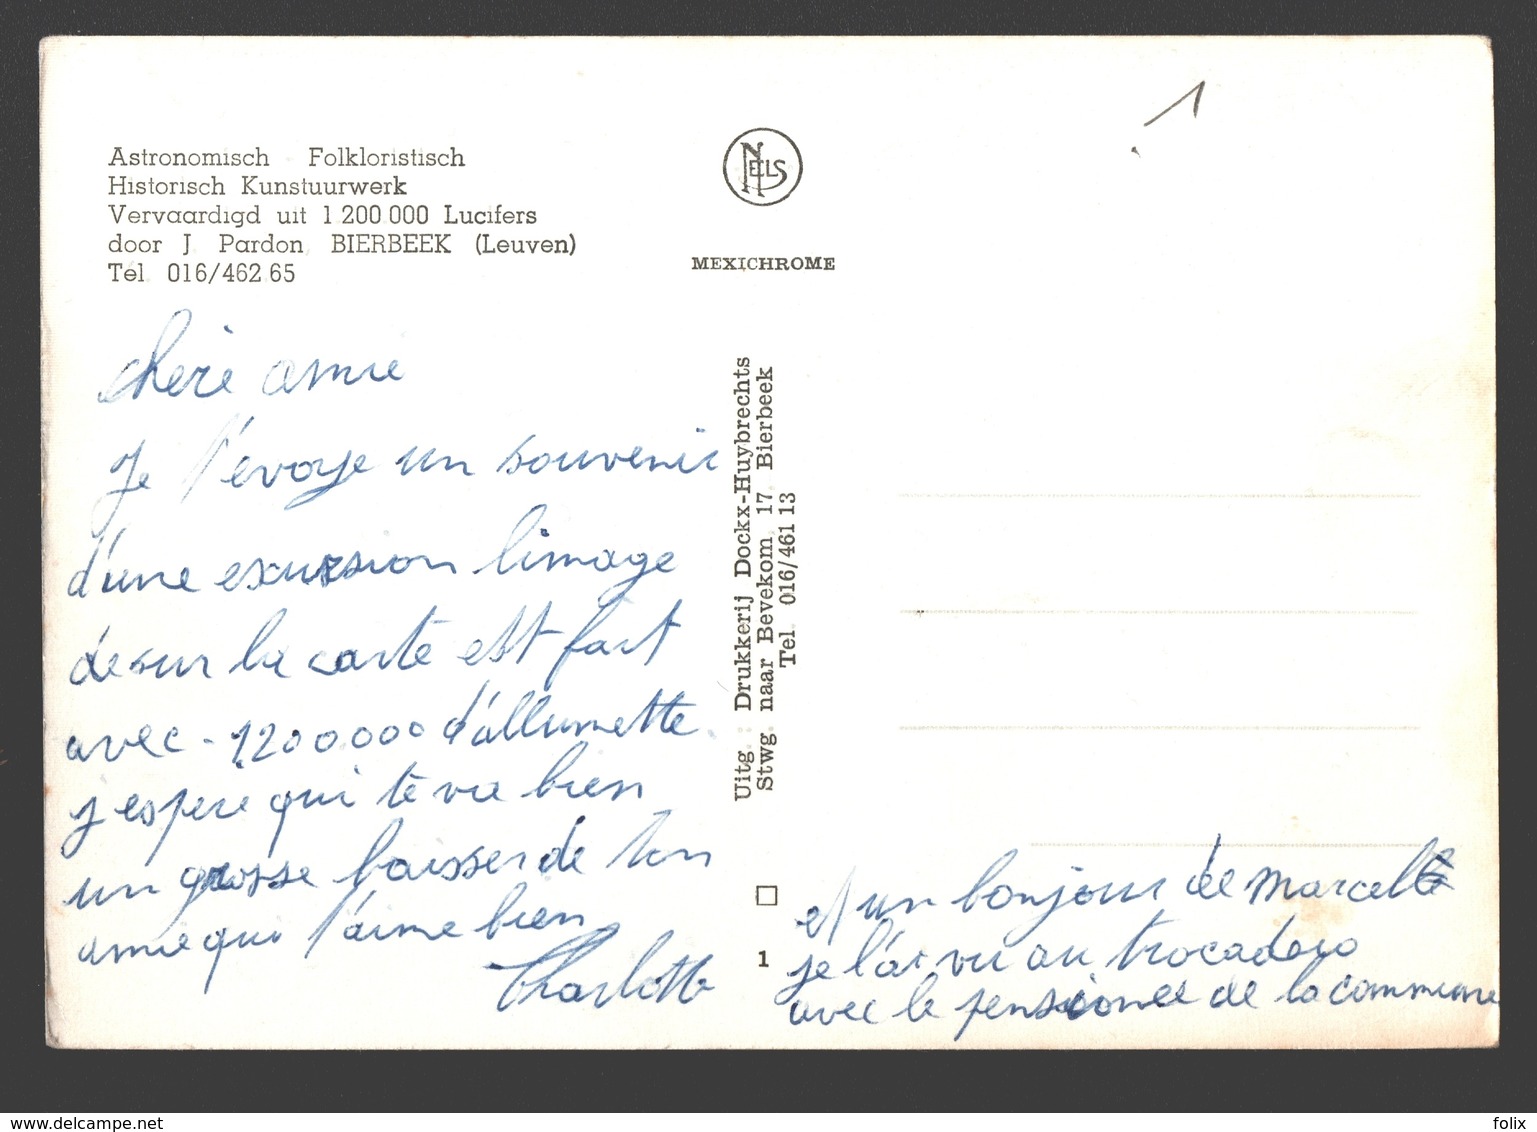 Astronomisch Folkloristisch
Historisch Kunstuurwerk
Vervaardigd uit 1 200 000 Lucifers
door J. Pardon, BIERBEEK (Leuven)
Tél. 016/462.65
NELS
MEXICHROME
1
chère amie
Je t'évoye un souvenir
d'une excursion limage
desur la carte est fait
avec - 1.200000 d'allumette.
j espere qui te va bien
un grosse baisser de ton
amie qui t'aime bien
Charlotte
Uitg. : Drukkerij Dockx-Huybrechts
Stwg. naar Bevekom, 17 Bierbeek
Tel. 016/461 13
1
et un bonjour de Marcel
je l'ai vu au trocadero
avec le pensionée de la commune
delcampe.net
folix